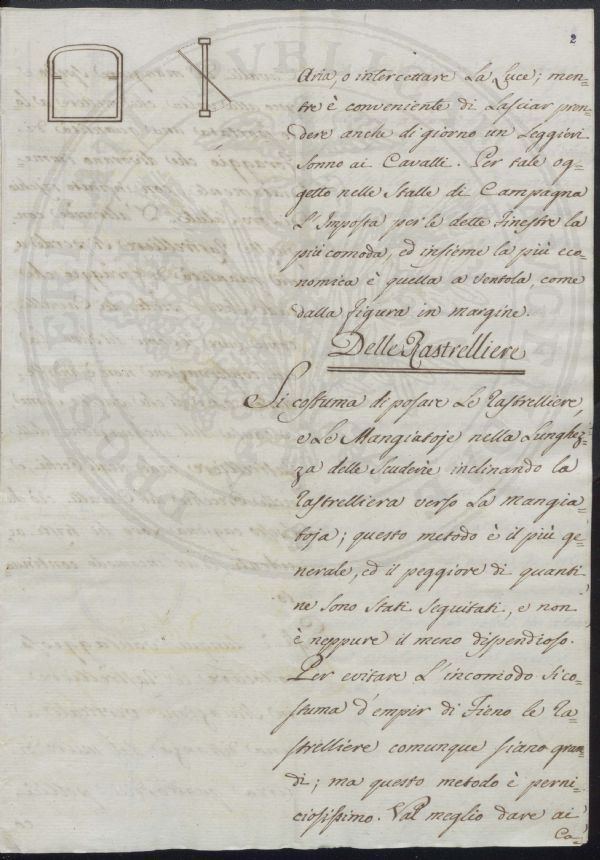 2
Aria, o intercettare La Luce; men=
tre è conveniente di Lasciar pren=
dere anche di giorno un Leggieri
Sonno ai Cavalli. Per tale og=
getto nelle Stalle di Campagna
L'Imposta per le dette Finestre la
più comoda, ed insieme la più eco=
nomica è quella a ventola, come
dalla figura in margine.
Delle Rastrelliere
Si costuma di posare Le Rastrelliere,
e Le Mangiatoje nella Lunghez=
za delle Scuderie inclinando la
Rastrelliera verso La mangia=
toja; questo metodo è il più ge=
nerale, ed il peggiore di quanti
ne sono stati seguitati, e non
è neppure il meno dispendioso.
Per evitare L'incomodo si co=
stuma d'empir di Fieno le Ra=
strelliere comunque siano gran=
di; ma questo metodo è perni=
ciosissimo. Val meglio dare ai
Ca=